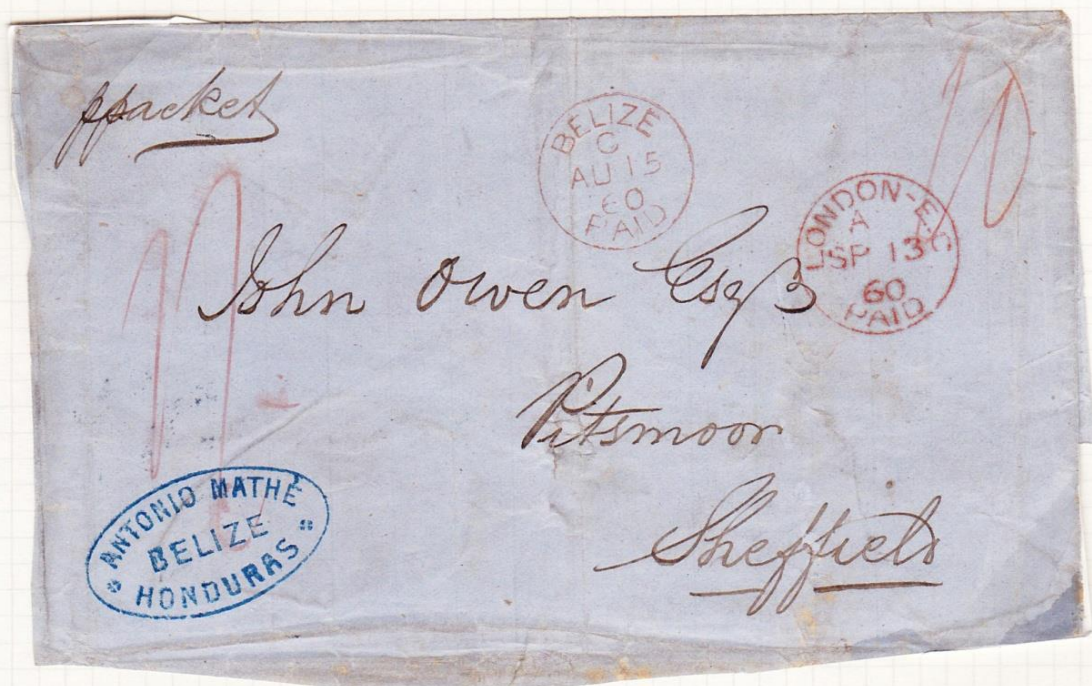 p packet
BELIZE
C
AU 15
60
PAID
LONDON-E.C
A
SP 13
60
PAID
John Owen Esqr
Pitsmoor
Sheffield
ANTONIO MATHÉ
BELIZE
HONDURAS